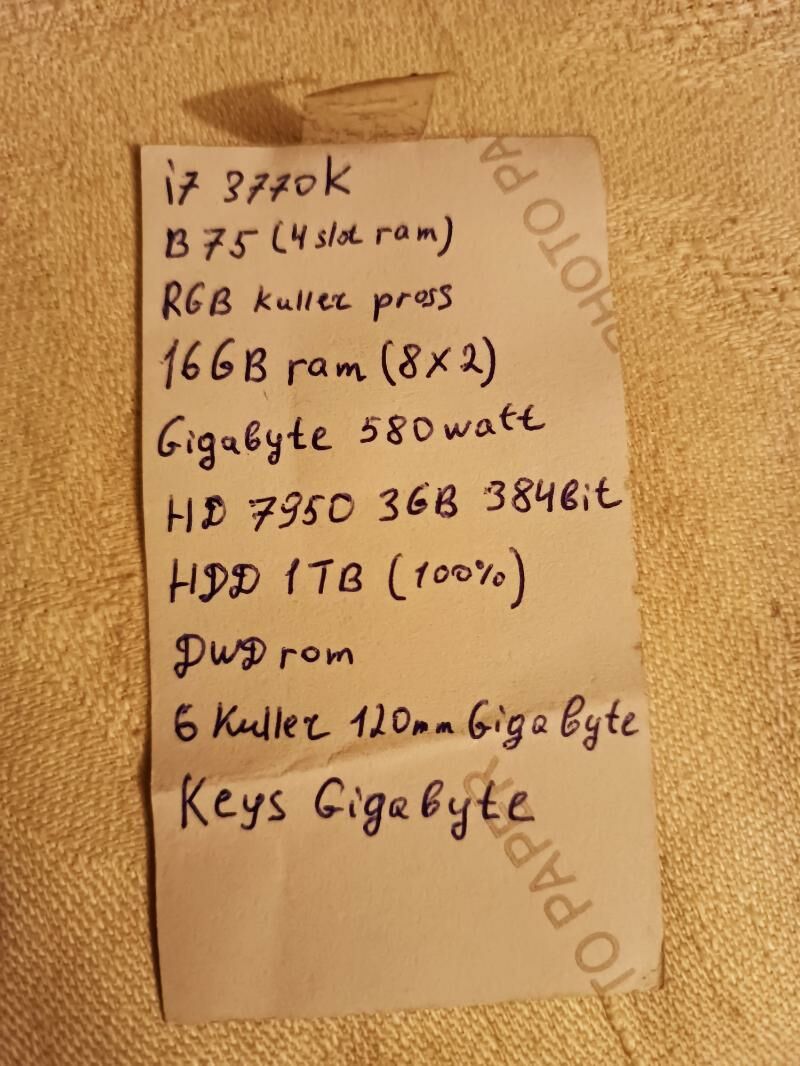 i7 3770K
B75 (4 slot ram)
RGB kuller pross
16GB ram (8X2)
Gigabyte 580watt
HD 7950 3GB 384Bit
HDD 1TB (100%)
DWD rom
6 Kuller 120mm Gigabyte
Keys Gigabyte
PHOTO PA
TO PAPER